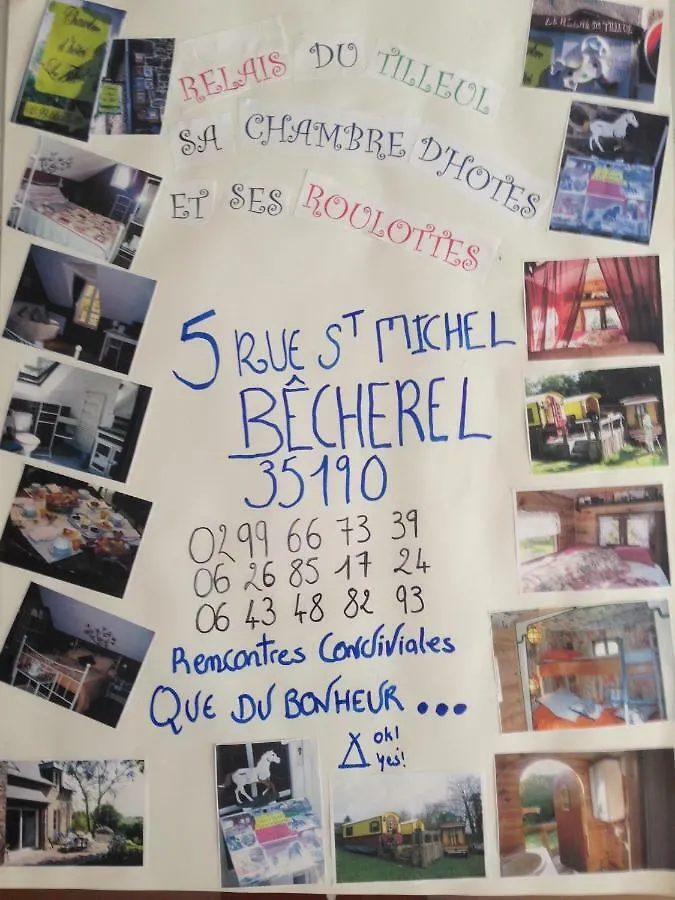 RELAIS DU TILLEUL
SA CHAMBRE D'HOTES
ET SES ROULOTTES
5 RUE ST MICHEL
BÊCHEREL
35190
02 99 66 73 39
06 26 85 17 24
06 43 48 82 93
Rencontres Conviviales
QUE DU BONHEUR...
ok!
yes!